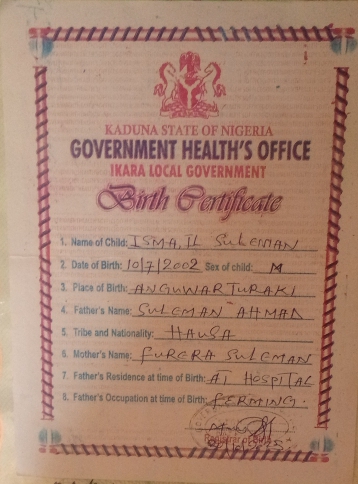 KADUNA STATE OF NIGERIA
GOVERNMENT HEALTH'S OFFICE
IKARA LOCAL GOVERNMENT
Birth Certificate
1. Name of Child: ISMA,IL SULEMAN
2. Date of Birth: 10/7/2002 Sex of child: M
3. Place of Birth: ANGUWAR TURAKI
4. Father's Name: SULEMAN AHMAD
5. Tribe and Nationality: HAUSA
6. Mother's Name: FURERA SULEMAN
7. Father's Residence at time of Birth: AT HOSPITAL
8. Father's Occupation at time of Birth: FERMING.
Registrar of Birth